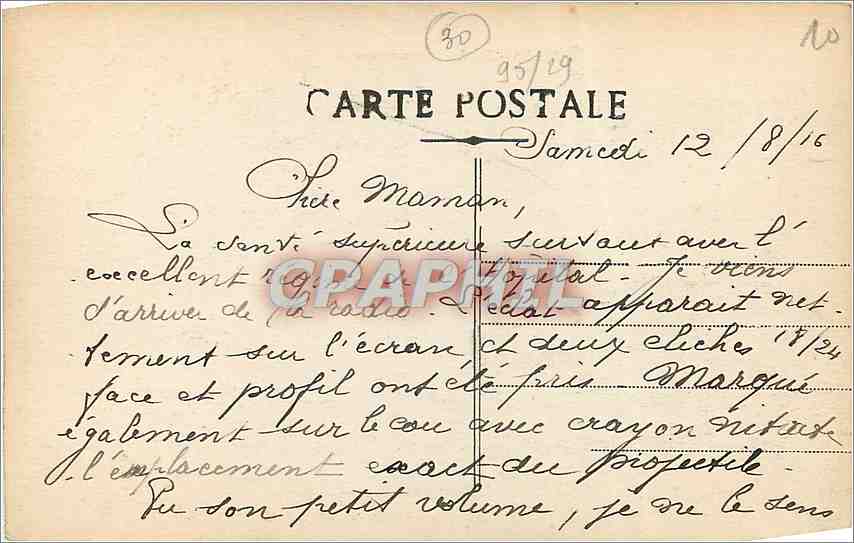 30
10
95/19
CARTE POSTALE
Samedi 12/8/16
Chère Maman,
La santé supérieure surtout avec l'
excellent régime de l'hôpital - Je viens
d'arriver de la radio. L'éclat apparait net-
tement sur l'écran, et deux clichés 18/24
face et profil ont été pris - Marqué
également sur le cou avec crayon nitrate
l'emplacement exact du projectile -
Vu son petit volume, je ne le sens
CPAPHIL